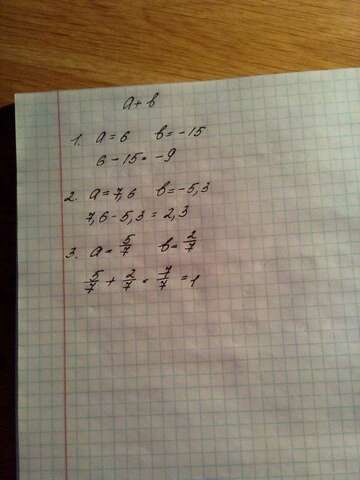 a + b
1. a = 6 b = -15
6 - 15 = -9
2. a = 7,6 b = -5,3
7,6 - 5,3 = 2,3
3. a = 5/7 b = 2/7
5/7 + 2/7 = 7/7 = 1